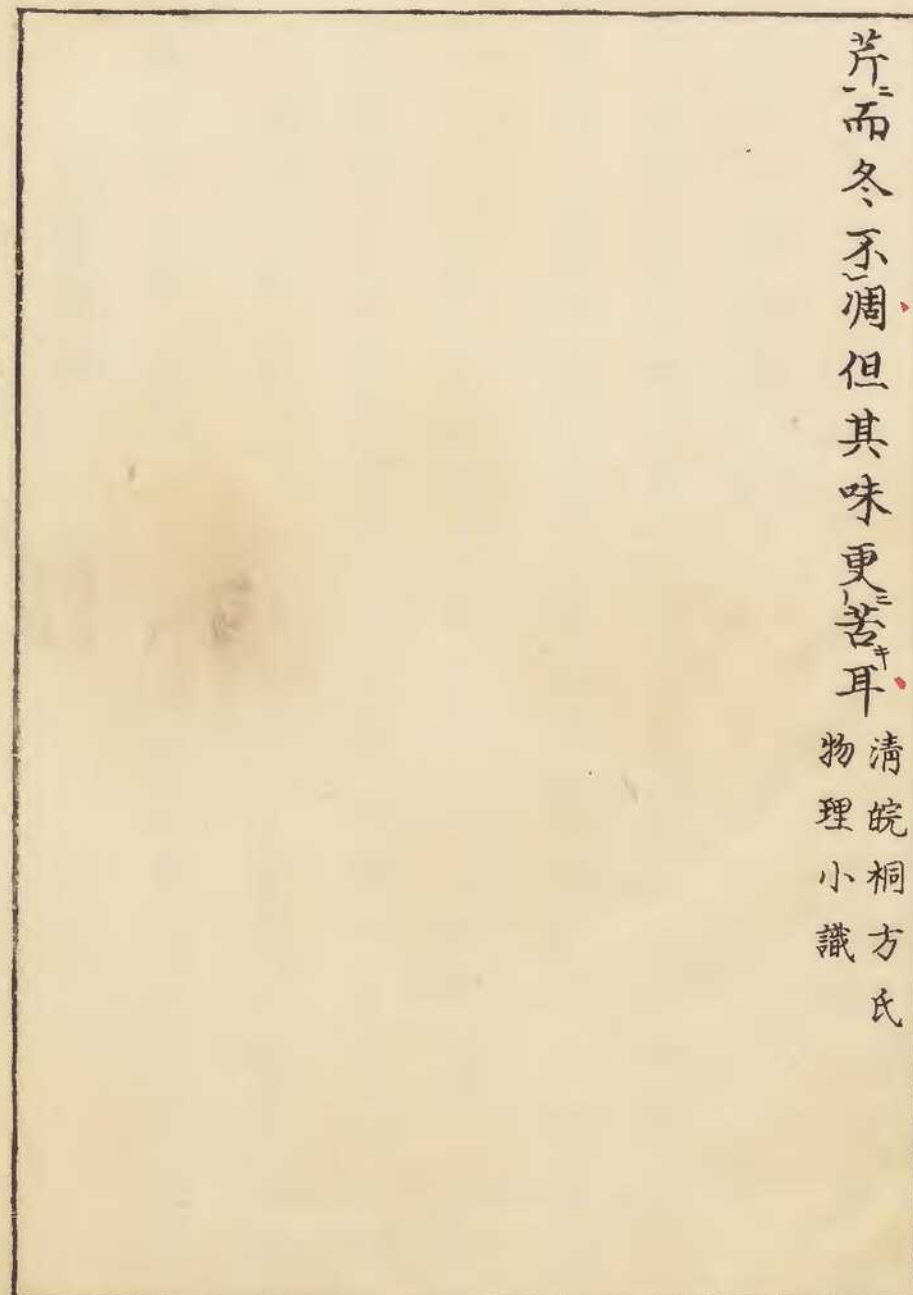 芹而冬不凋但其味更苦耳
清皖桐方氏
物理小識